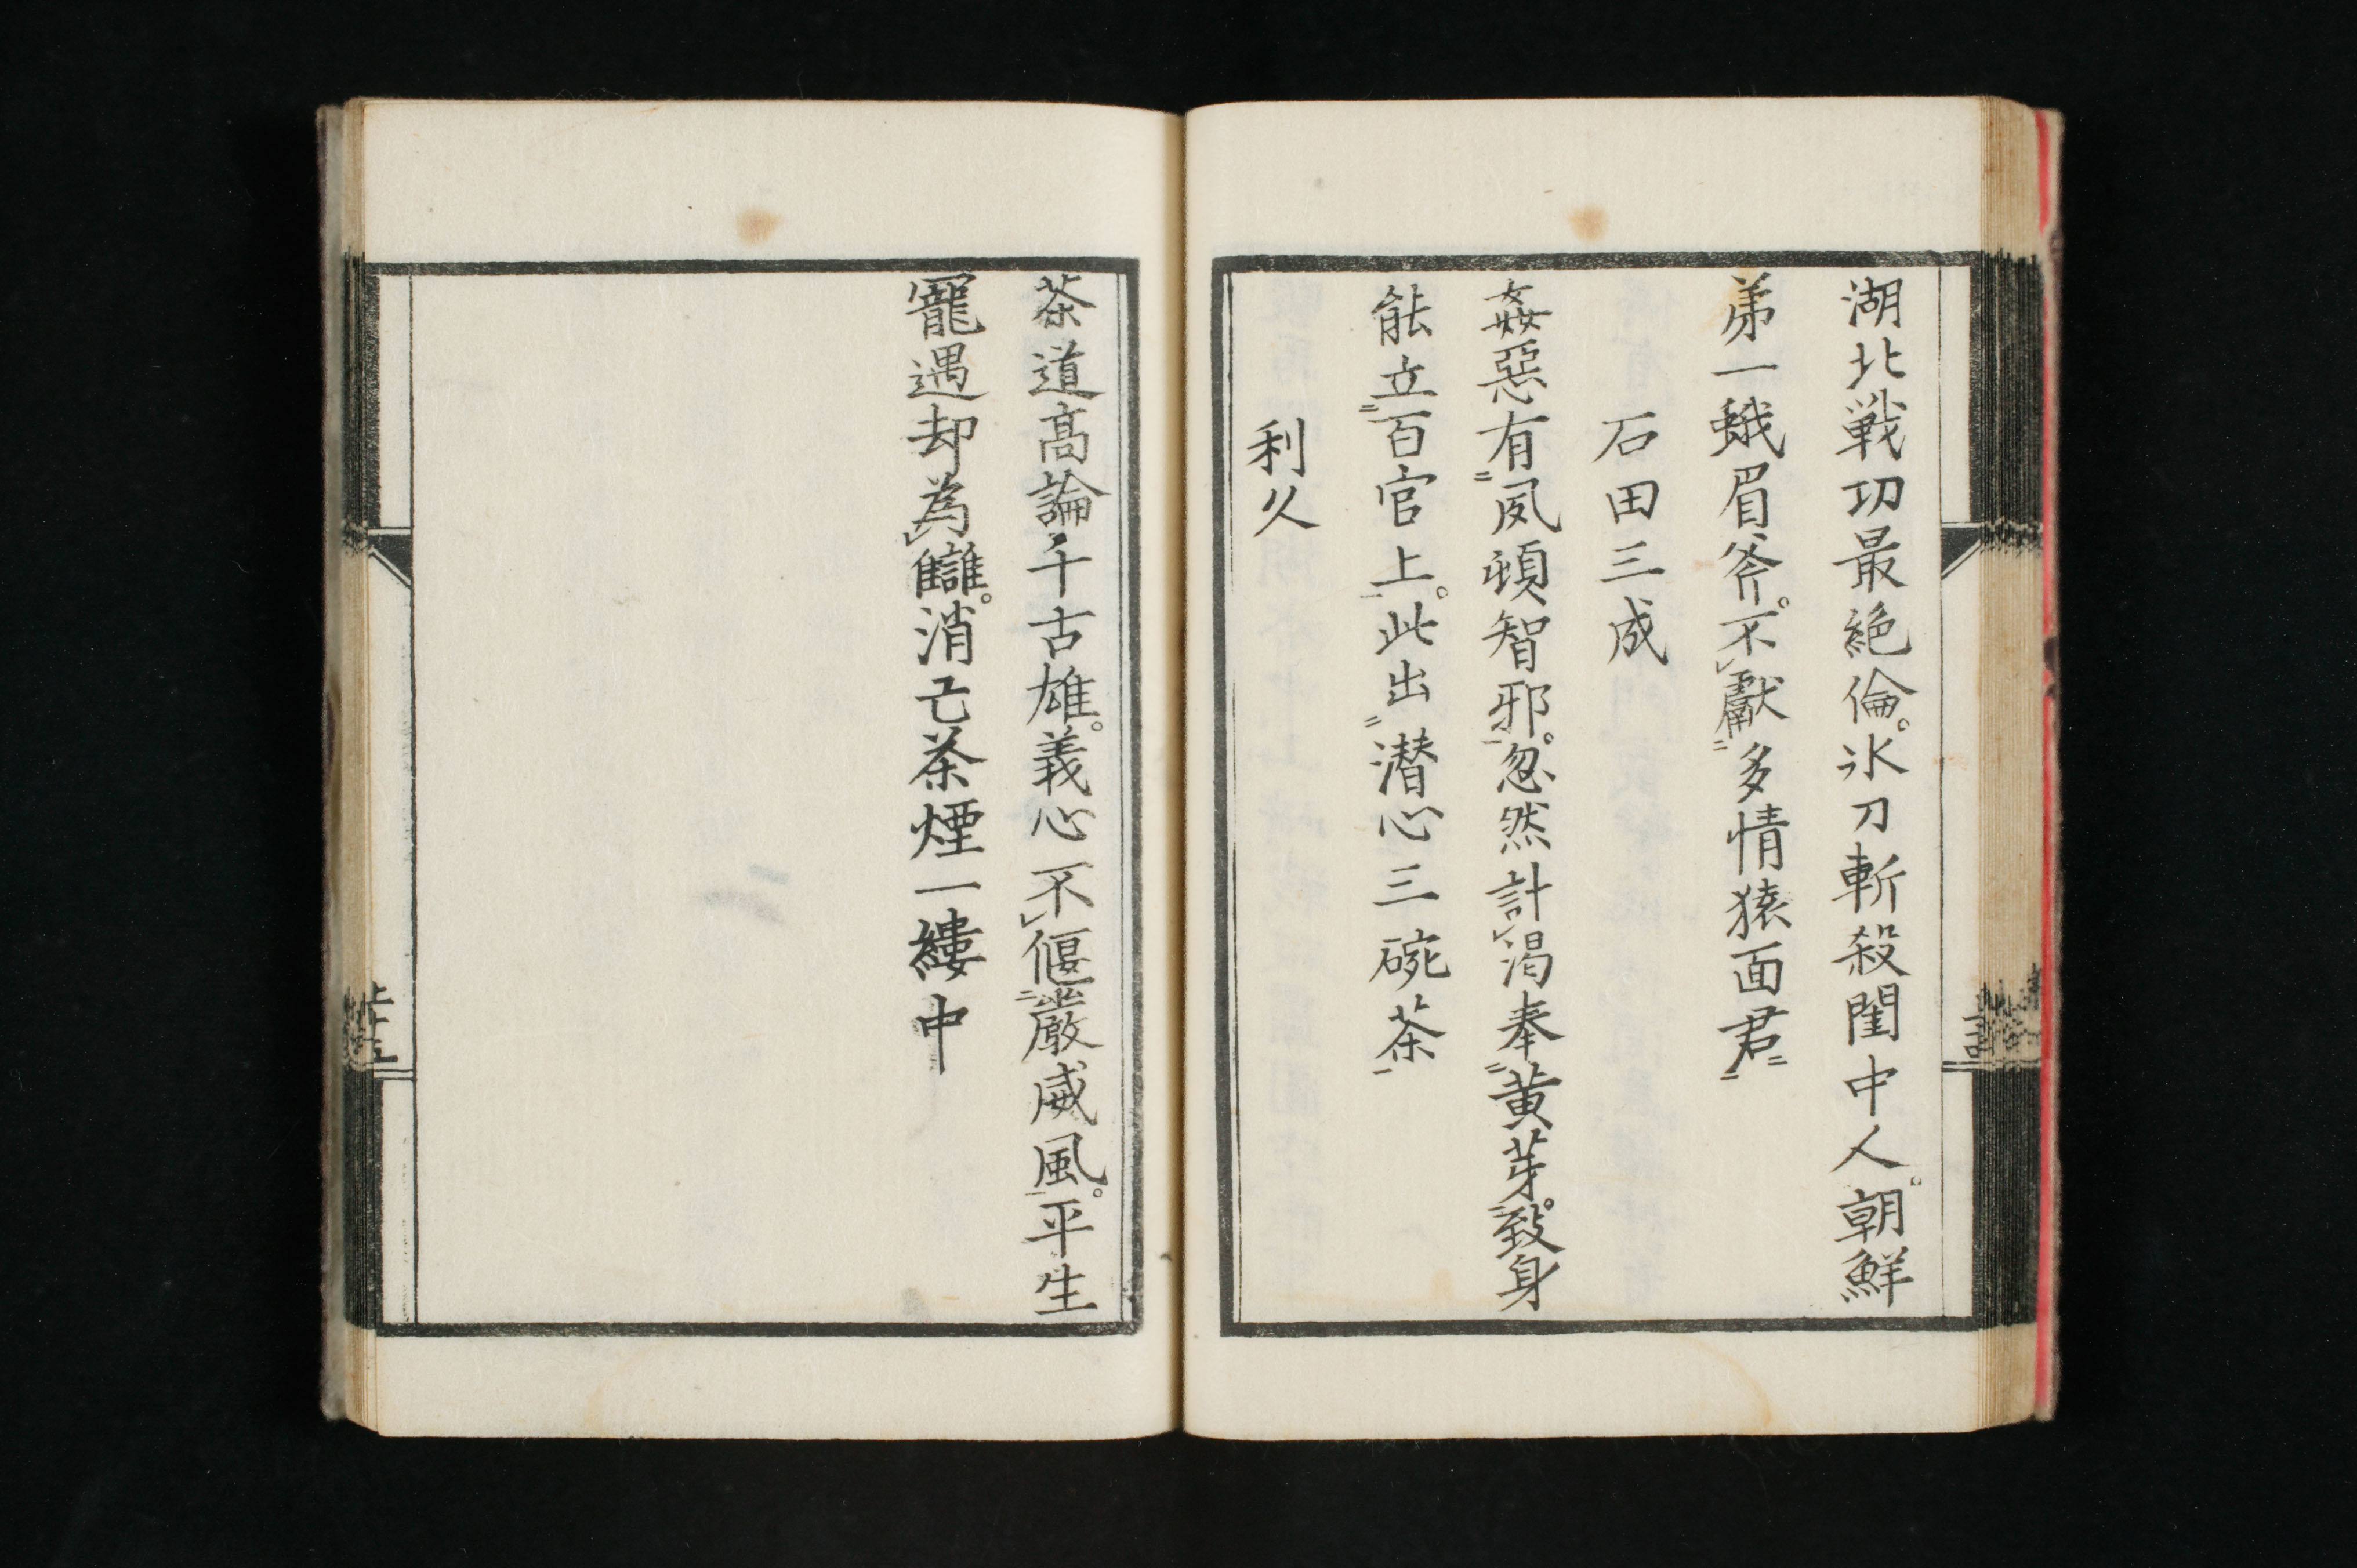 湖北戦功最絶倫。氷刀斬殺閨中人。朝鮮
弟一蛾眉斧。不獻多情猿面君
石田三成
姦惡有夙頓智邪。忽然計渇奉黄芽。致身
能立百官上。此出潜心三碗茶
利久
茶道高論千古雄。義心不偃嚴威風。平生
寵遇却為讎。消亡茶煙一縷中